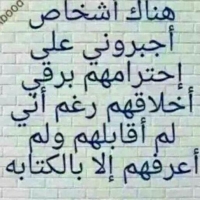 هناك اشخاص
أجبروني على
إحترامهم برقي
أخلاقهم رغم أني
لم أقابلهم ولم
أعرفهم إلا بالكتابه